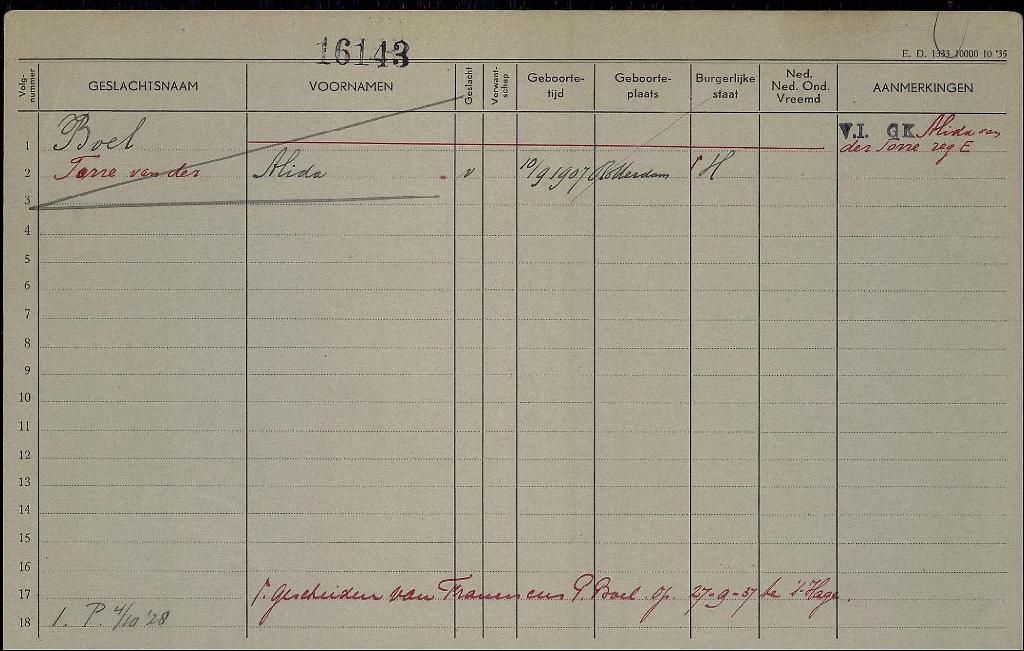 16143
E. D. 1333 10000 10 '35
Volg-nummer GESLACHTSNAAM VOORNAMEN Geslacht Verwant-schap Geboorte-tijd Geboorte-plaats Burgerlijke staat Ned. Ned. Ond. Vreemd AANMERKINGEN
1 Boel V.I. GK Alida van
der Torre reg E
2 Torre van der Alida v 10/9 1907 Rotterdam 1 H
3
4
5
6
7
8
9
10
11
12
13
14
15
16
17 1. gescheiden van Franciscus P. Boel op 27-9-37 te 's-Hage.
18 1. P. 4/10 '28